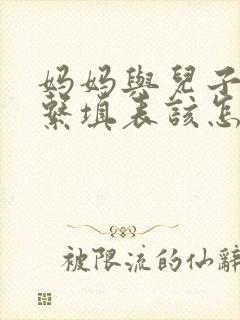 妈妈與兒子
繫填表該怎
被限流的仙辭